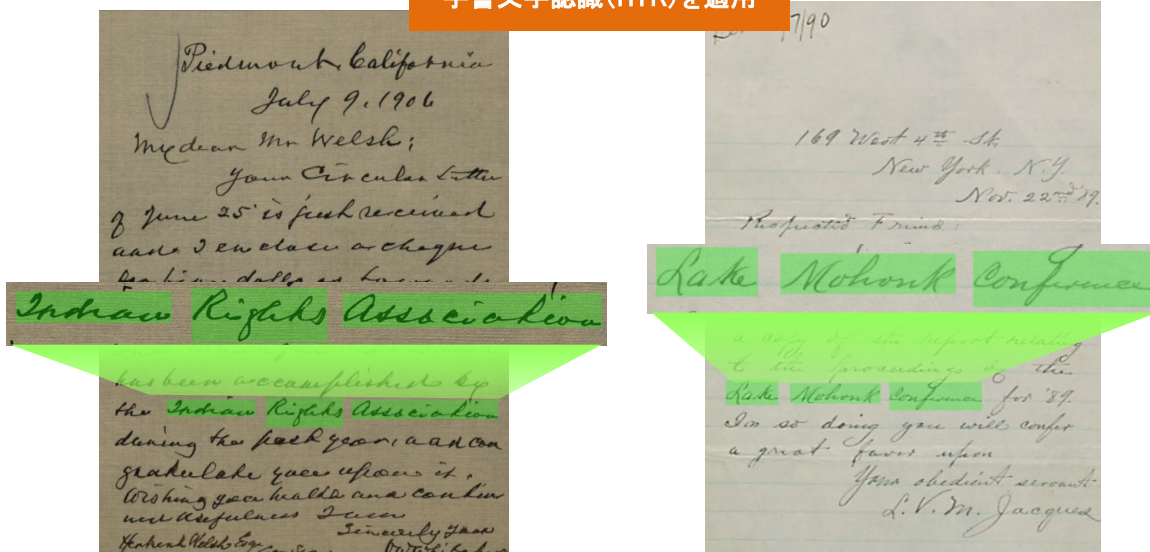 手書文字認識(HTR)を適用
Piedmont, California
July 9, 1906
My dear Mr Welsh:
Your Circular Letter
of June 25 is just received
and I enclose a cheque
Indian Rights Association
has been accomplished by
the Indian Rights Association
during the past year, and con
gratulate you upon it.
Wishing you health and contin
ued usefulness I am
Sincerely yours
Herbert Welsh Esq
7/90
169 West 4th St.
New York. N.Y.
Nov. 22nd '89.
Respected Friend:
Lake Mohonk Conference
a copy of the report relating
to the proceedings of the
Lake Mohonk Conference for '89.
In so doing you will confer
a great favor upon
Your obedient servant
L. V. M. Jacques